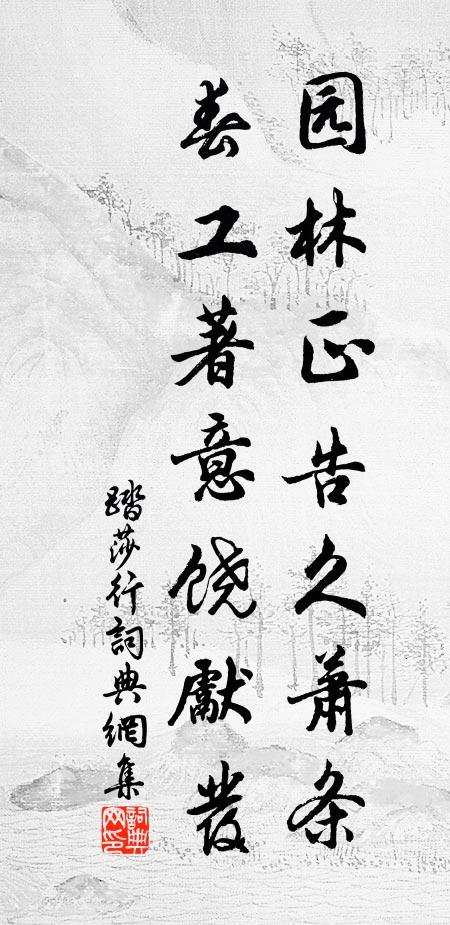 园林正告久蕭条
春工著意饶獻發
踏莎行詞典網集
詞典
网印